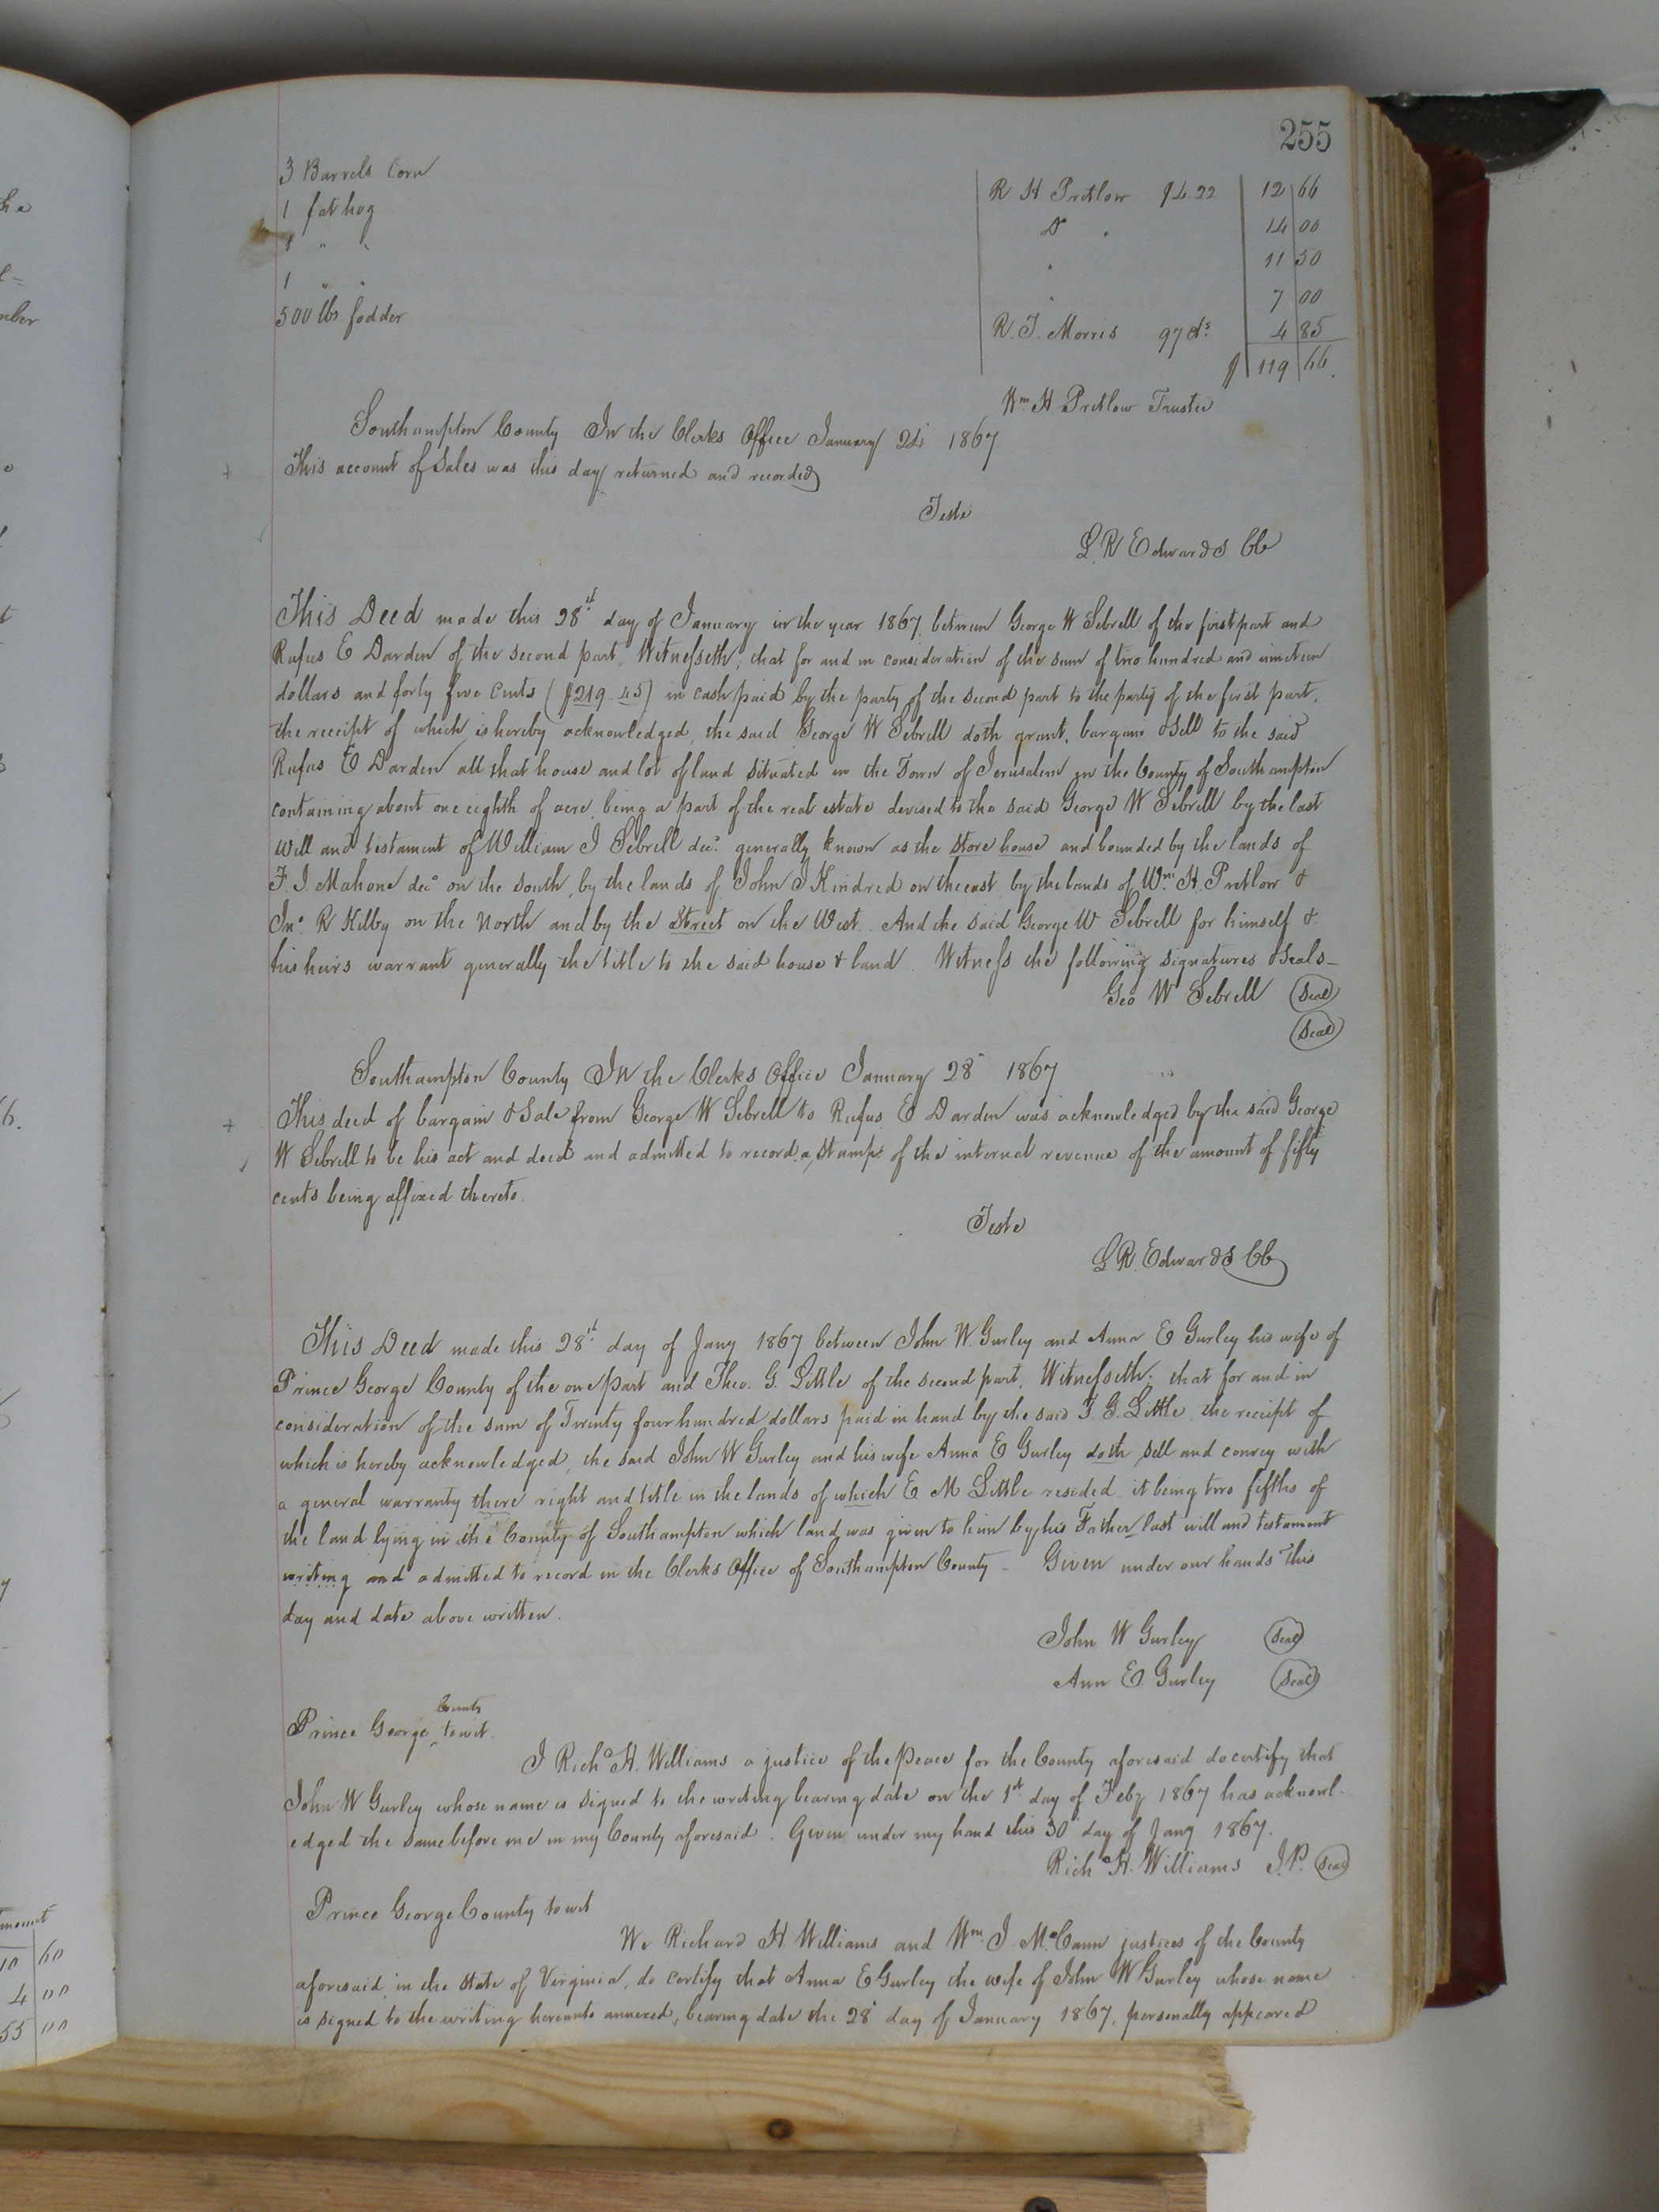 255
3 Barrels Corn R H Pretlow $4.22 12 66
1 fat hog Do " 14 00
1 " " " 11 50
1 " " " 7 00
500 lbs fodder R. T. Morris 97 cts 4 85
$ 119 66.
Wm H. Pretlow Trustee
Southampton County In the Clerks Office January 24 1867
This account of Sales was this day returned and recorded
Teste
L. R Edwards CC
This Deed made this 28th day of January in the year 1867, between George W Sebrell of the first part and
Rufus E Darden of the second part, Witnesseth; that for and in consideration of the sum of two hundred and nineteen
dollars and forty five cents ($219.45) in cash paid by the party of the second part to the party of the first part,
the receipt of which is hereby acknowledged, the said George W Sebrell doth grant, bargain & Sell to the said
Rufus E Darden all that house and lot of land situated in the Town of Jerusalem in the County of Southampton
containing about one eighth of acre, being a part of the real estate devised to the said George W Sebrell by the last
will and testament of William J Sebrell decd. generally known as the store house and bounded by the lands of
F. J. Mahone decd on the south, by the lands of John J Kindred on the east by the lands of Wm. H. Pretlow &
Jno. R Kilby on the North and by the Street on the West. And the said George W Sebrell for himself &
his heirs warrant generally the title to the said house & land. Witness the following signatures & Seals_
Geo W Sebrell (Seal)
(Seal)
Southampton County In the Clerks Office January 28 1867
This deed of bargain & Sale from George W Sebrell to Rufus E Darden was acknowledged by the said George
W Sebrell to be his act and deed and admitted to record a stamp of the internal revenue of the amount of fifty
cents being affixed thereto.
Teste
L R. Edwards CC
This Deed made this 28th day of Jany 1867 between John W. Gurley and Anna E Gurley his wife of
Prince George County of the one part and Theo. G. Little of the second part, Witnesseth; that for and in
consideration of the sum of Twenty four hundred dollars paid in hand by the said T. G. Little the receipt of
which is hereby acknowledged, the said John W Gurley and his wife Anna E Gurley doth sell and convey with
a general warranty there right and title in the lands of which E M Little resided it being two fifths of
the land lying in the County of Southampton which land was given to him by his Father last will and testament
writing and admitted to record in the Clerks Office of Southampton County - Given under our hands this
day and date above written.
John W Gurley (Seal)
Ann E. Gurley (Seal)
Prince George County towit.
I Richd H. Williams a justice of the Peace for the County aforesaid do certify that
John W Gurley whose name is signed to the writing bearing date on the 1st day of Feby 1867 has acknowl-
edged the same before me in my County aforesaid. Given under my hand this 30 day of Jany 1867.
Richd H. Williams J.P. (Seal)
Prince George County to wit
We Richard H. Williams and Wm. J. McCann justices of the County
aforesaid, in the State of Virginia, do certify that Anna E Gurley the wife of John W Gurley whose name
is signed to the writing hereunto annexed, bearing date the 28 day of January 1867, personally appeared